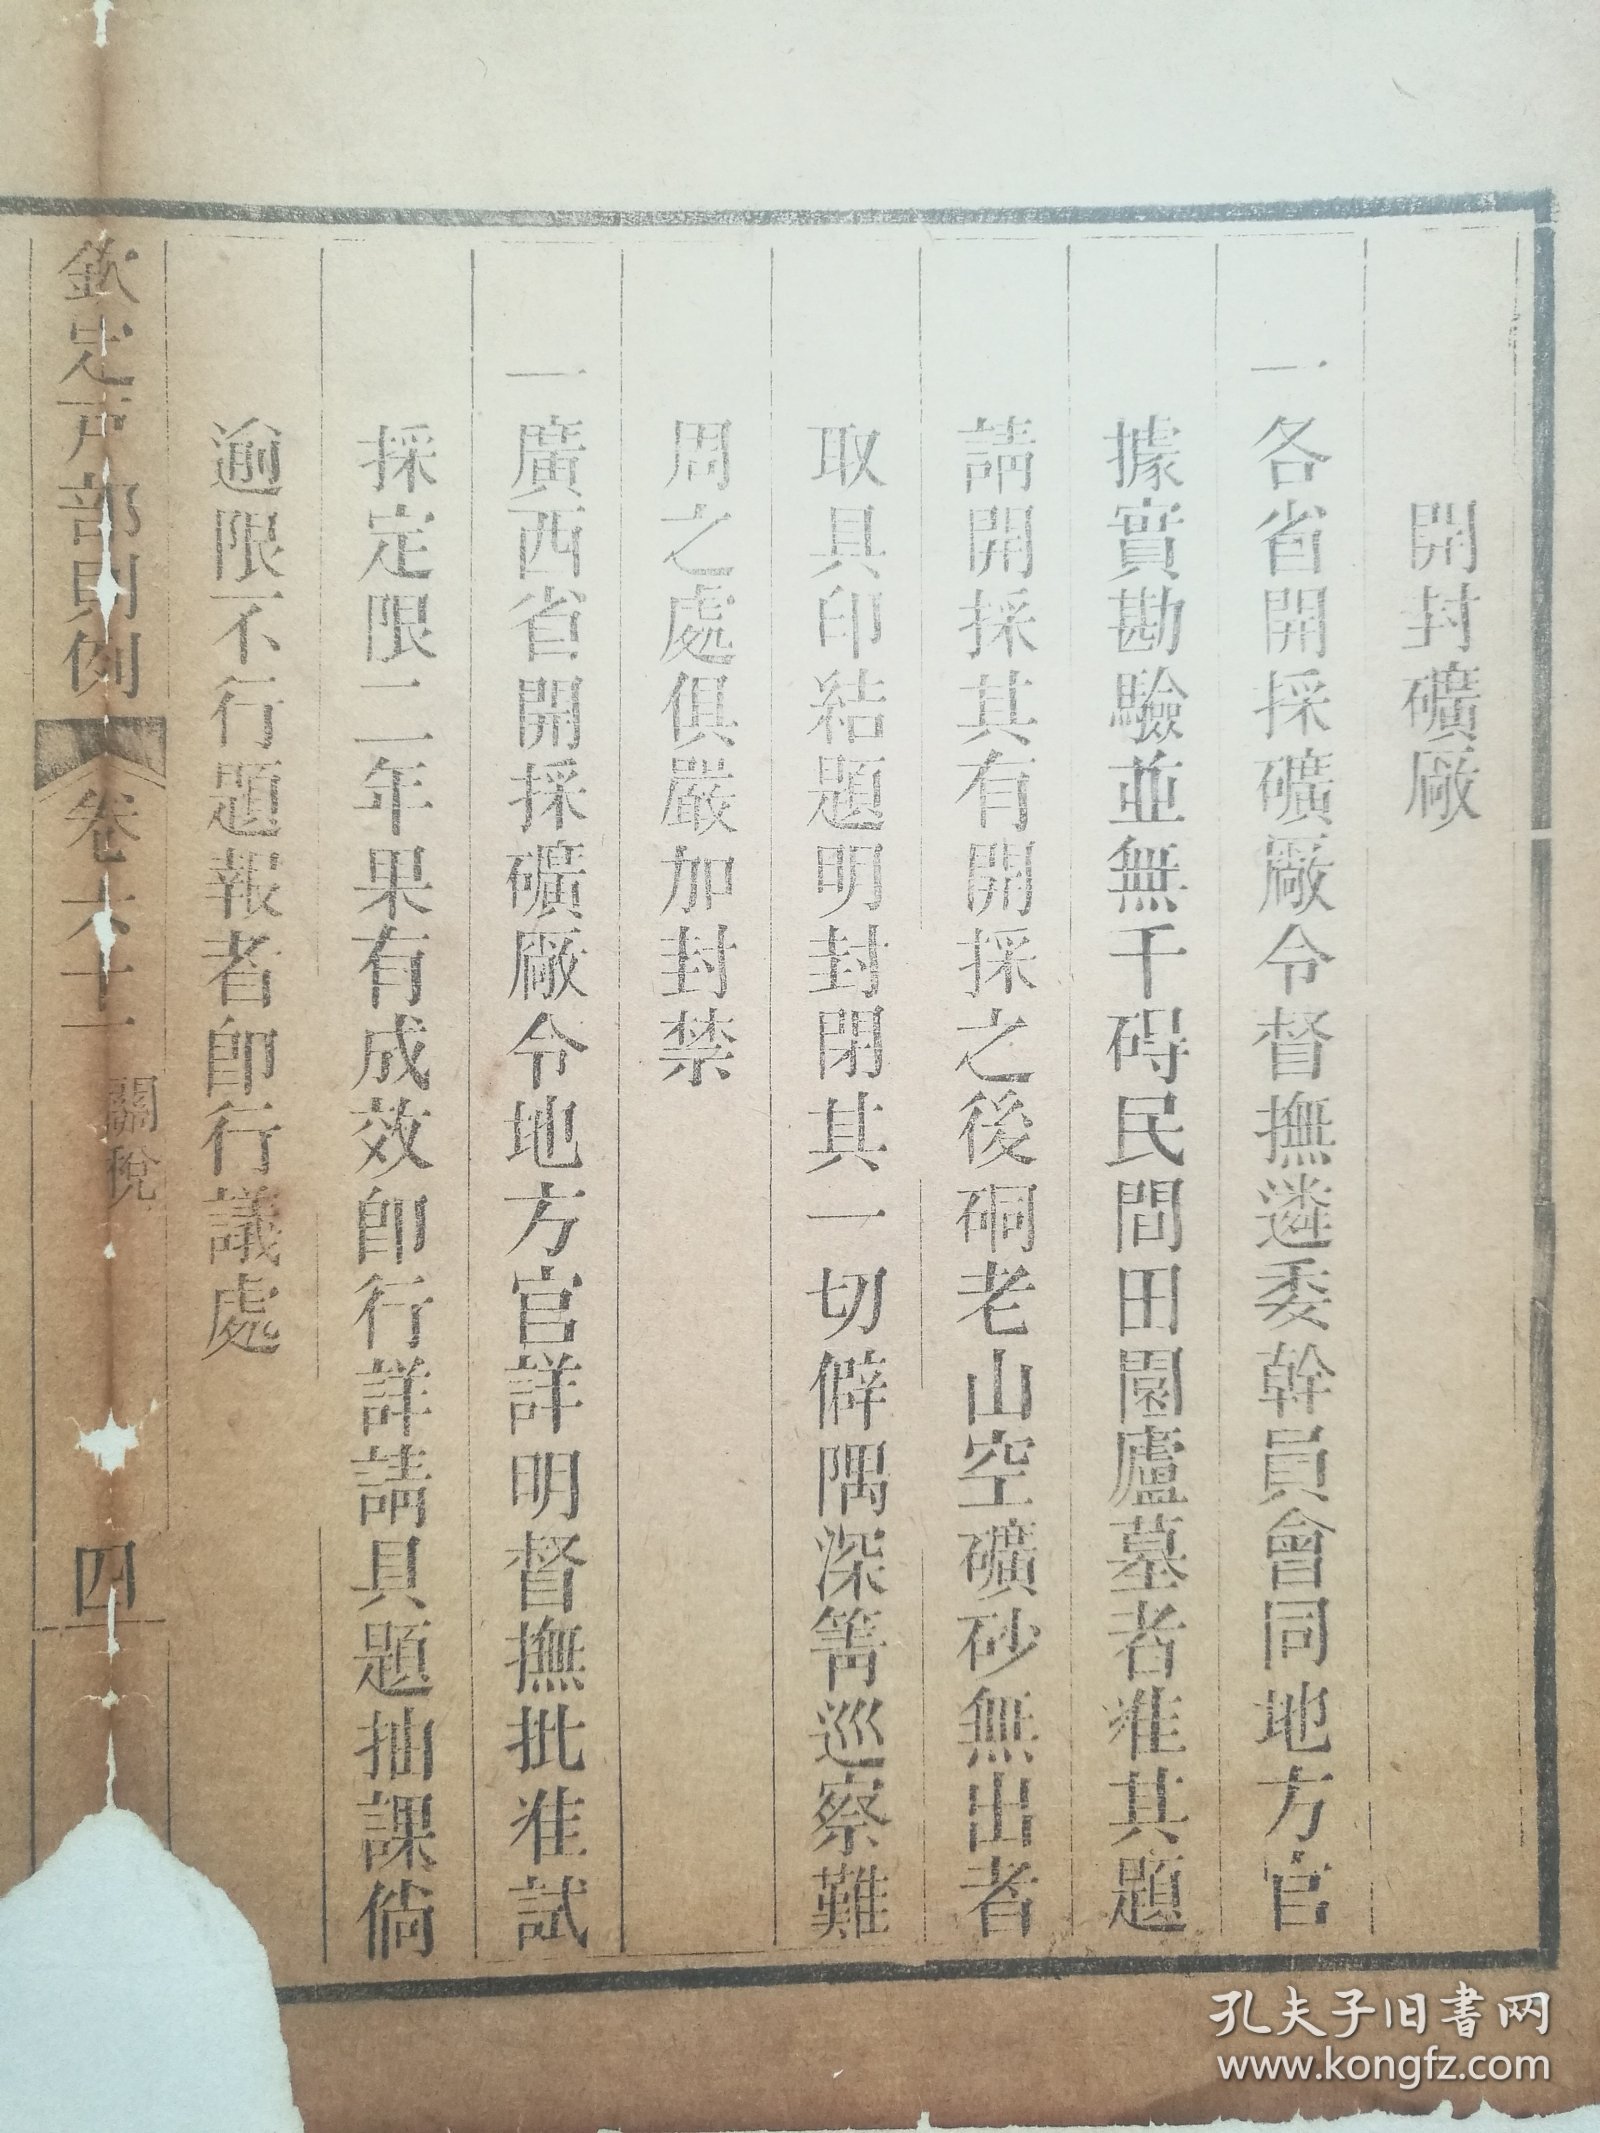 開封礦厰
一各省開採礦厰令督撫遴委幹員會同地方官
據實勘驗並無干碍民間田園廬墓者准其題
請開採其有開採之後硐老山空礦砂無出者
取具印結題明封閉其一切僻隅深箐巡察難
周之處俱嚴加封禁
一廣西省開採礦厰令地方官詳明督撫批准試
採定限二年果有成效卽行詳請具題抽課倘
逾限不行題報者卽行議處
欽定戸部則例 卷六十一 關稅 四
孔夫子旧书网
www.kongfz.com